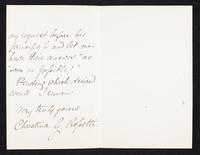 my request before his
principals and let me
have their answer "as
soon as possible."
Pending which desired
event I remain
Very truly yours
Christina G. Rossetti